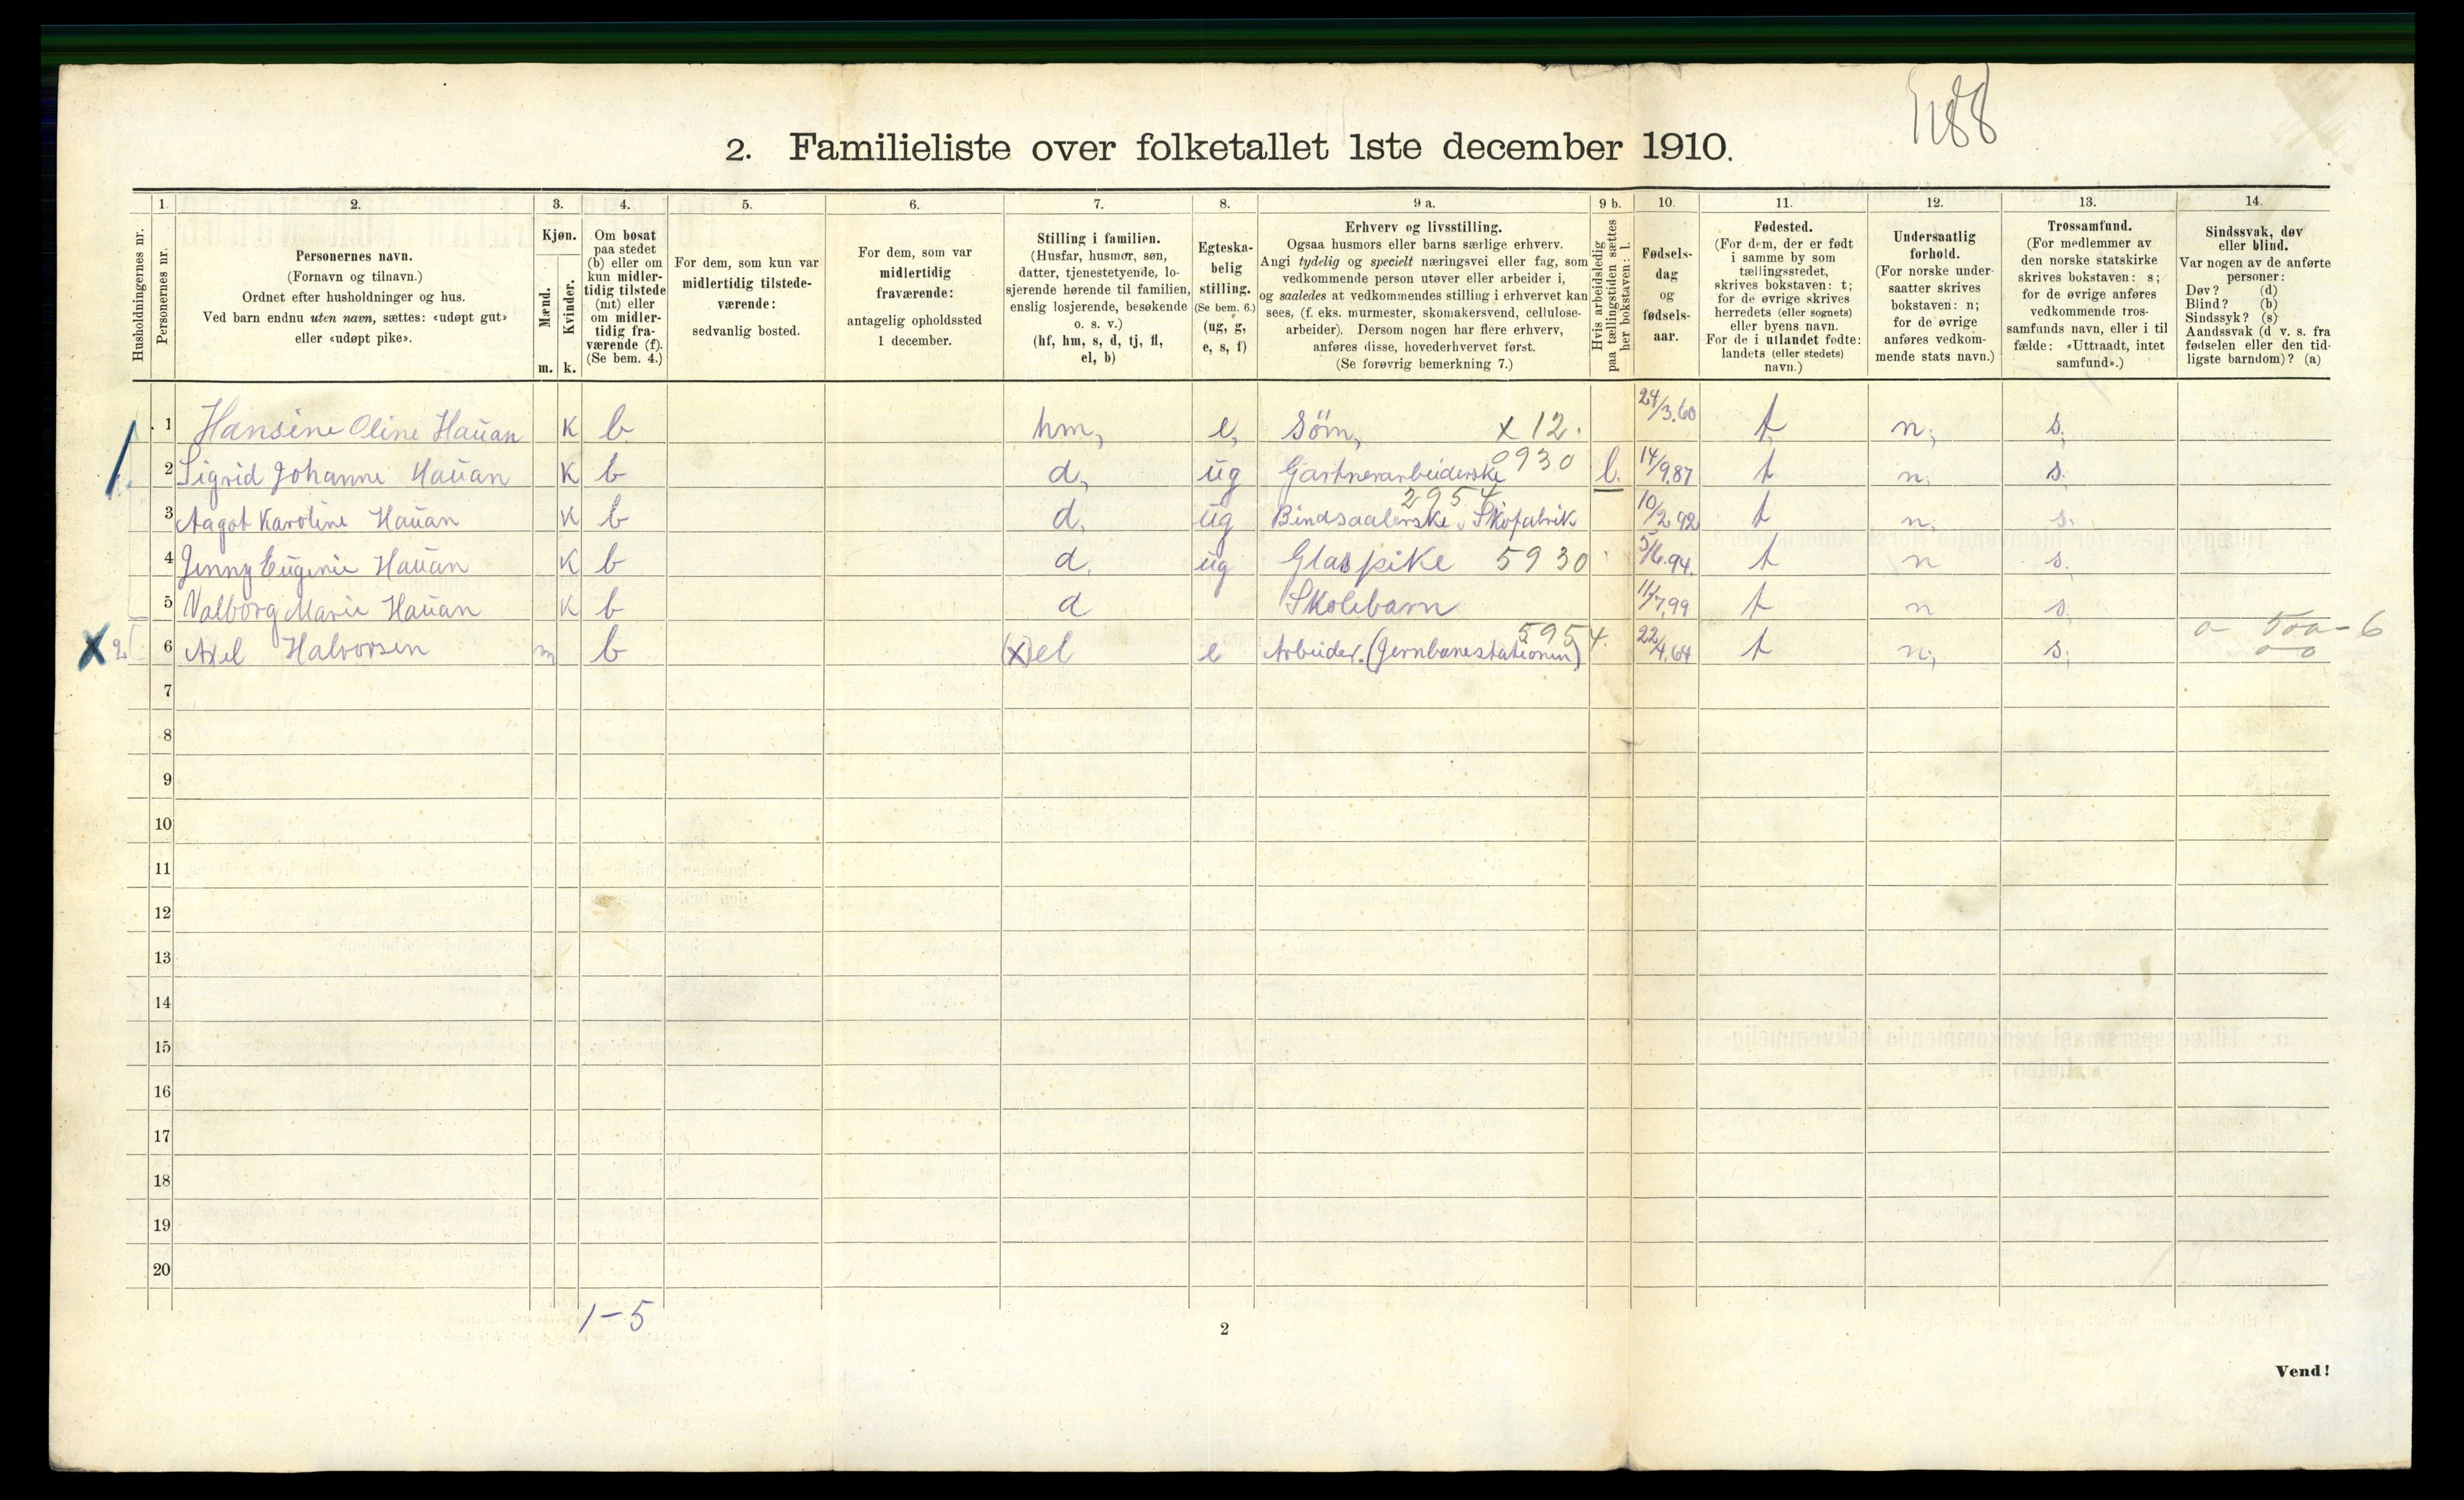 1188
2. Familieliste over folketallet 1ste december 1910.
Husholdningernes nr.
1. Personernes nr.
2.
Personernes navn.
(Fornavn og tilnavn.)
Ordnet efter husholdninger og hus.
Ved barn endnu uten navn, sættes: «udøpt gut»
eller «udøpt pike».
3.
Kjøn.
Mænd.
Kvinder.
m. k.
4.
Om bosat
paa stedet
(b) eller om
kun midler-
tidig tilstede
(mt) eller
om midler-
tidig fra-
værende (f).
(Se bem. 4.)
5.
For dem, som kun var
midlertidig tilstede-
værende:
sedvanlig bosted.
6.
For dem, som var
midlertidig
fraværende:
antagelig opholdssted
1 december.
7.
Stilling i familien.
(Husfar, husmor, søn,
datter, tjenestetyende, lo-
sjerende hørende til familien,
enslig losjerende, besøkende
o. s. v.)
(hf, hm, s, d, tj, fl,
el, b)
8.
Egteska-
belig
stilling.
(Se bem. 6.)
(ug, g,
e, s, f)
9 a.
Erhverv og livsstilling.
Ogsaa husmors eller barns særlige erhverv.
Angi tydelig og specielt næringsvei eller fag, som
vedkommende person utøver eller arbeider i,
og saaledes at vedkommendes stilling i erhvervet kan
sees, (f. eks. murmester, skomakersvend, cellulose-
arbeider). Dersom nogen har flere erhverv,
anføres disse, hovederhvervet først.
(Se forøvrig bemerkning 7.)
9 b.
Hvis arbeidsledig
paa tællingstiden sættes
her bokstaven: l.
10.
Fødsels-
dag
og
fødsels-
aar.
11.
Fødested.
(For dem, der er født
i samme by som
tællingsstedet,
skrives bokstaven: t;
for de øvrige skrives
herredets (eller sognets)
eller byens navn.
For de i utlandet fødte:
landets (eller stedets)
navn.)
12.
Undersaatlig
forhold.
(For norske under-
saatter skrives
bokstaven: n;
for de øvrige
anføres vedkom-
mende stats navn.)
13.
Trossamfund.
(For medlemmer av
den norske statskirke
skrives bokstaven: s;
for de øvrige anføres
vedkommende tros-
samfunds navn, eller i til
fælde: «Uttraadt, intet
samfund».)
14.
Sindssvak, døv
eller blind.
Var nogen av de anførte
personer:
Døv? (d)
Blind? (b)
Sindssyk? (s)
Aandssvak (d v. s. fra
fødselen eller den tid-
ligste barndom)? (a)
1 1 Hansine Oline Hauan K b hm, e, Søm, x 12. 24/3.60 t n; s.
2 Sigrid Johanne Hauan K b d, ug Gartnerarbeiderske 0930 l. 14/9.87 t n. s.
3 Aagot Karoline Hauan K b d, ug Bindsaalerske v. Skofabrik 2954 10/2 92 t n. s.
4 Jenny Eugenie Hauan K b d, ug Glaspike 5930 5/6.94. t n s.
5 Valborg Marie Hauan K b d Skolebarn 11/7.99 t n s.
x 2 6 Axel Halvorsen m b (x) el e Arbeider. (Jernbanestationen) 5954. 22/4.64 t n; s;
7
8
9
10
11
12
13
14
15
16
17
18
19
20
1-5
2
Vend!